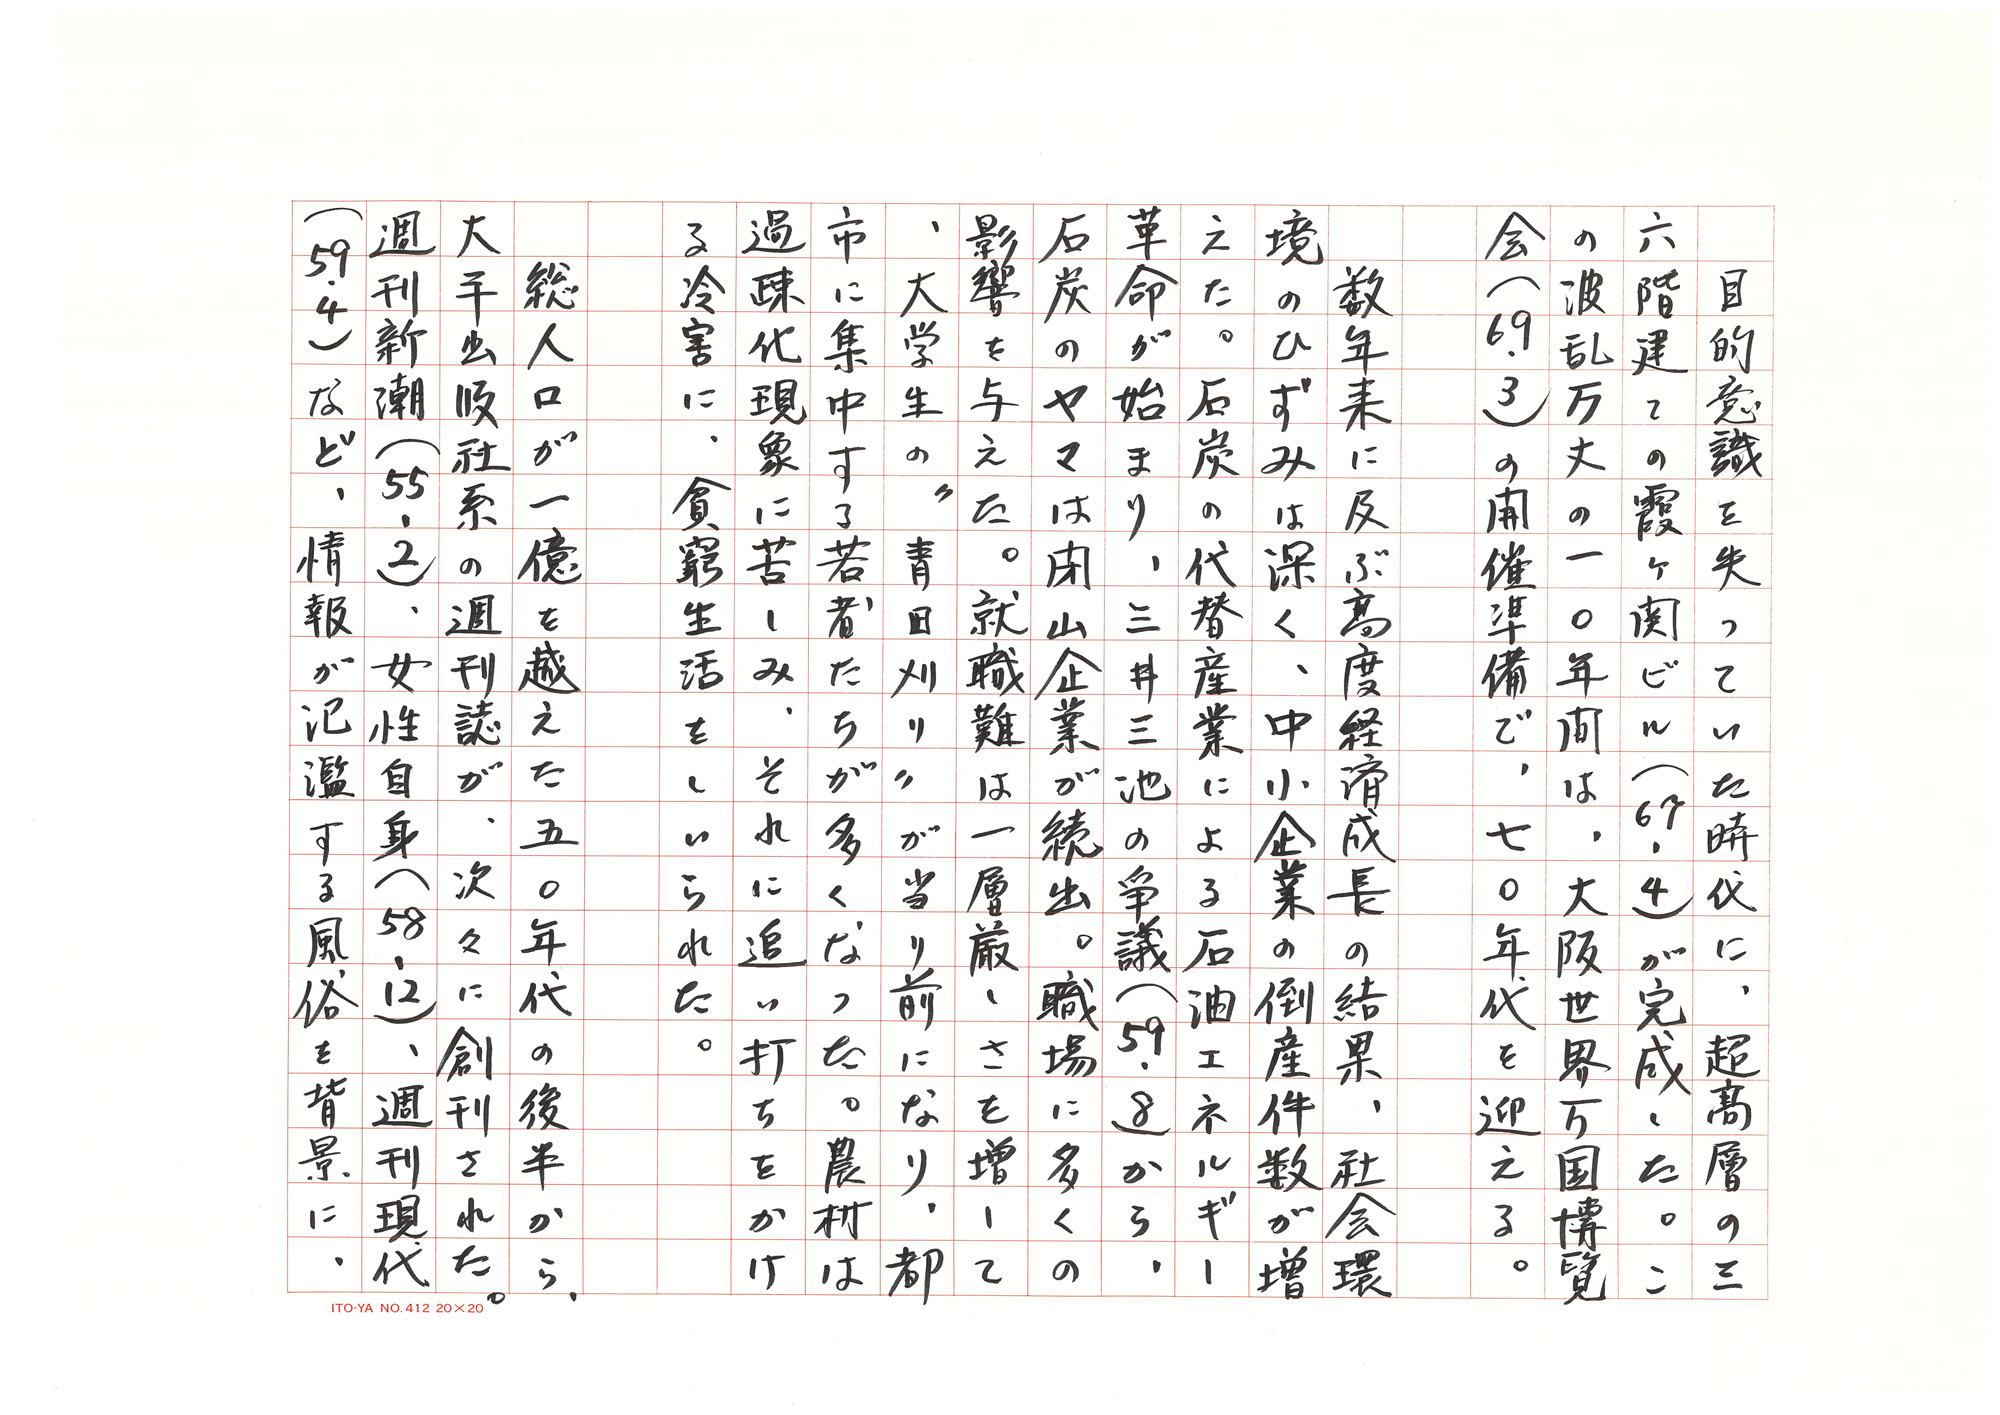 目的意識を失っていた時代に、超高層の三
六階建ての霞ヶ関ビル(67.4)が完成した。こ
の波乱万丈の一〇年間は、大阪世界万国博覧
会(69.3)の開催準備で、七〇年代を迎える。
　数年来に及ぶ高度経済成長の結果、社会環
境のひずみは深く、中小企業の倒産件数が増
えた。石炭の代替産業による石油エネルギー
革命が始まり、三井三池の争議(59.8)から、
石炭のヤマは閉山企業が続出。職場に多くの
影響を与えた。就職難は一層厳しさを増して
、大学生の〝青田刈り〟が当り前になり、都
市に集中する若者たちが多くなった。農村は
過疎化現象に苦しみ、それに追い打ちをかけ
る冷害に、貧窮生活をしいられた。
　総人口が一億を越えた五〇年代の後半から、
大手出版社系の週刊誌が、次々に創刊された。
週刊新潮(55.2)、女性自身(58.12)、週刊現代
(59.4)など、情報が氾濫する風俗を背景に、
ITO-YA NO.412 20×20